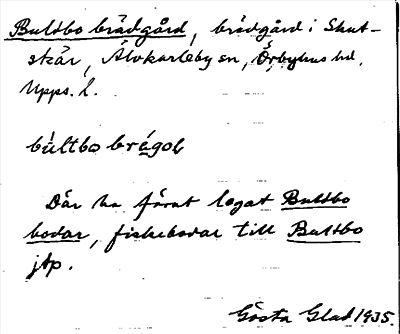 Bultbo brädgård, brädgård i Skut-
skär, Älvkarleby sn, Örbyhus hd,
Upps. l.
bu̇ltbo brägoḷ
Där ha förut legat Bultbo
bodar, fiskebodar till Bultbo
jtp.
Gösta Glad 1935.